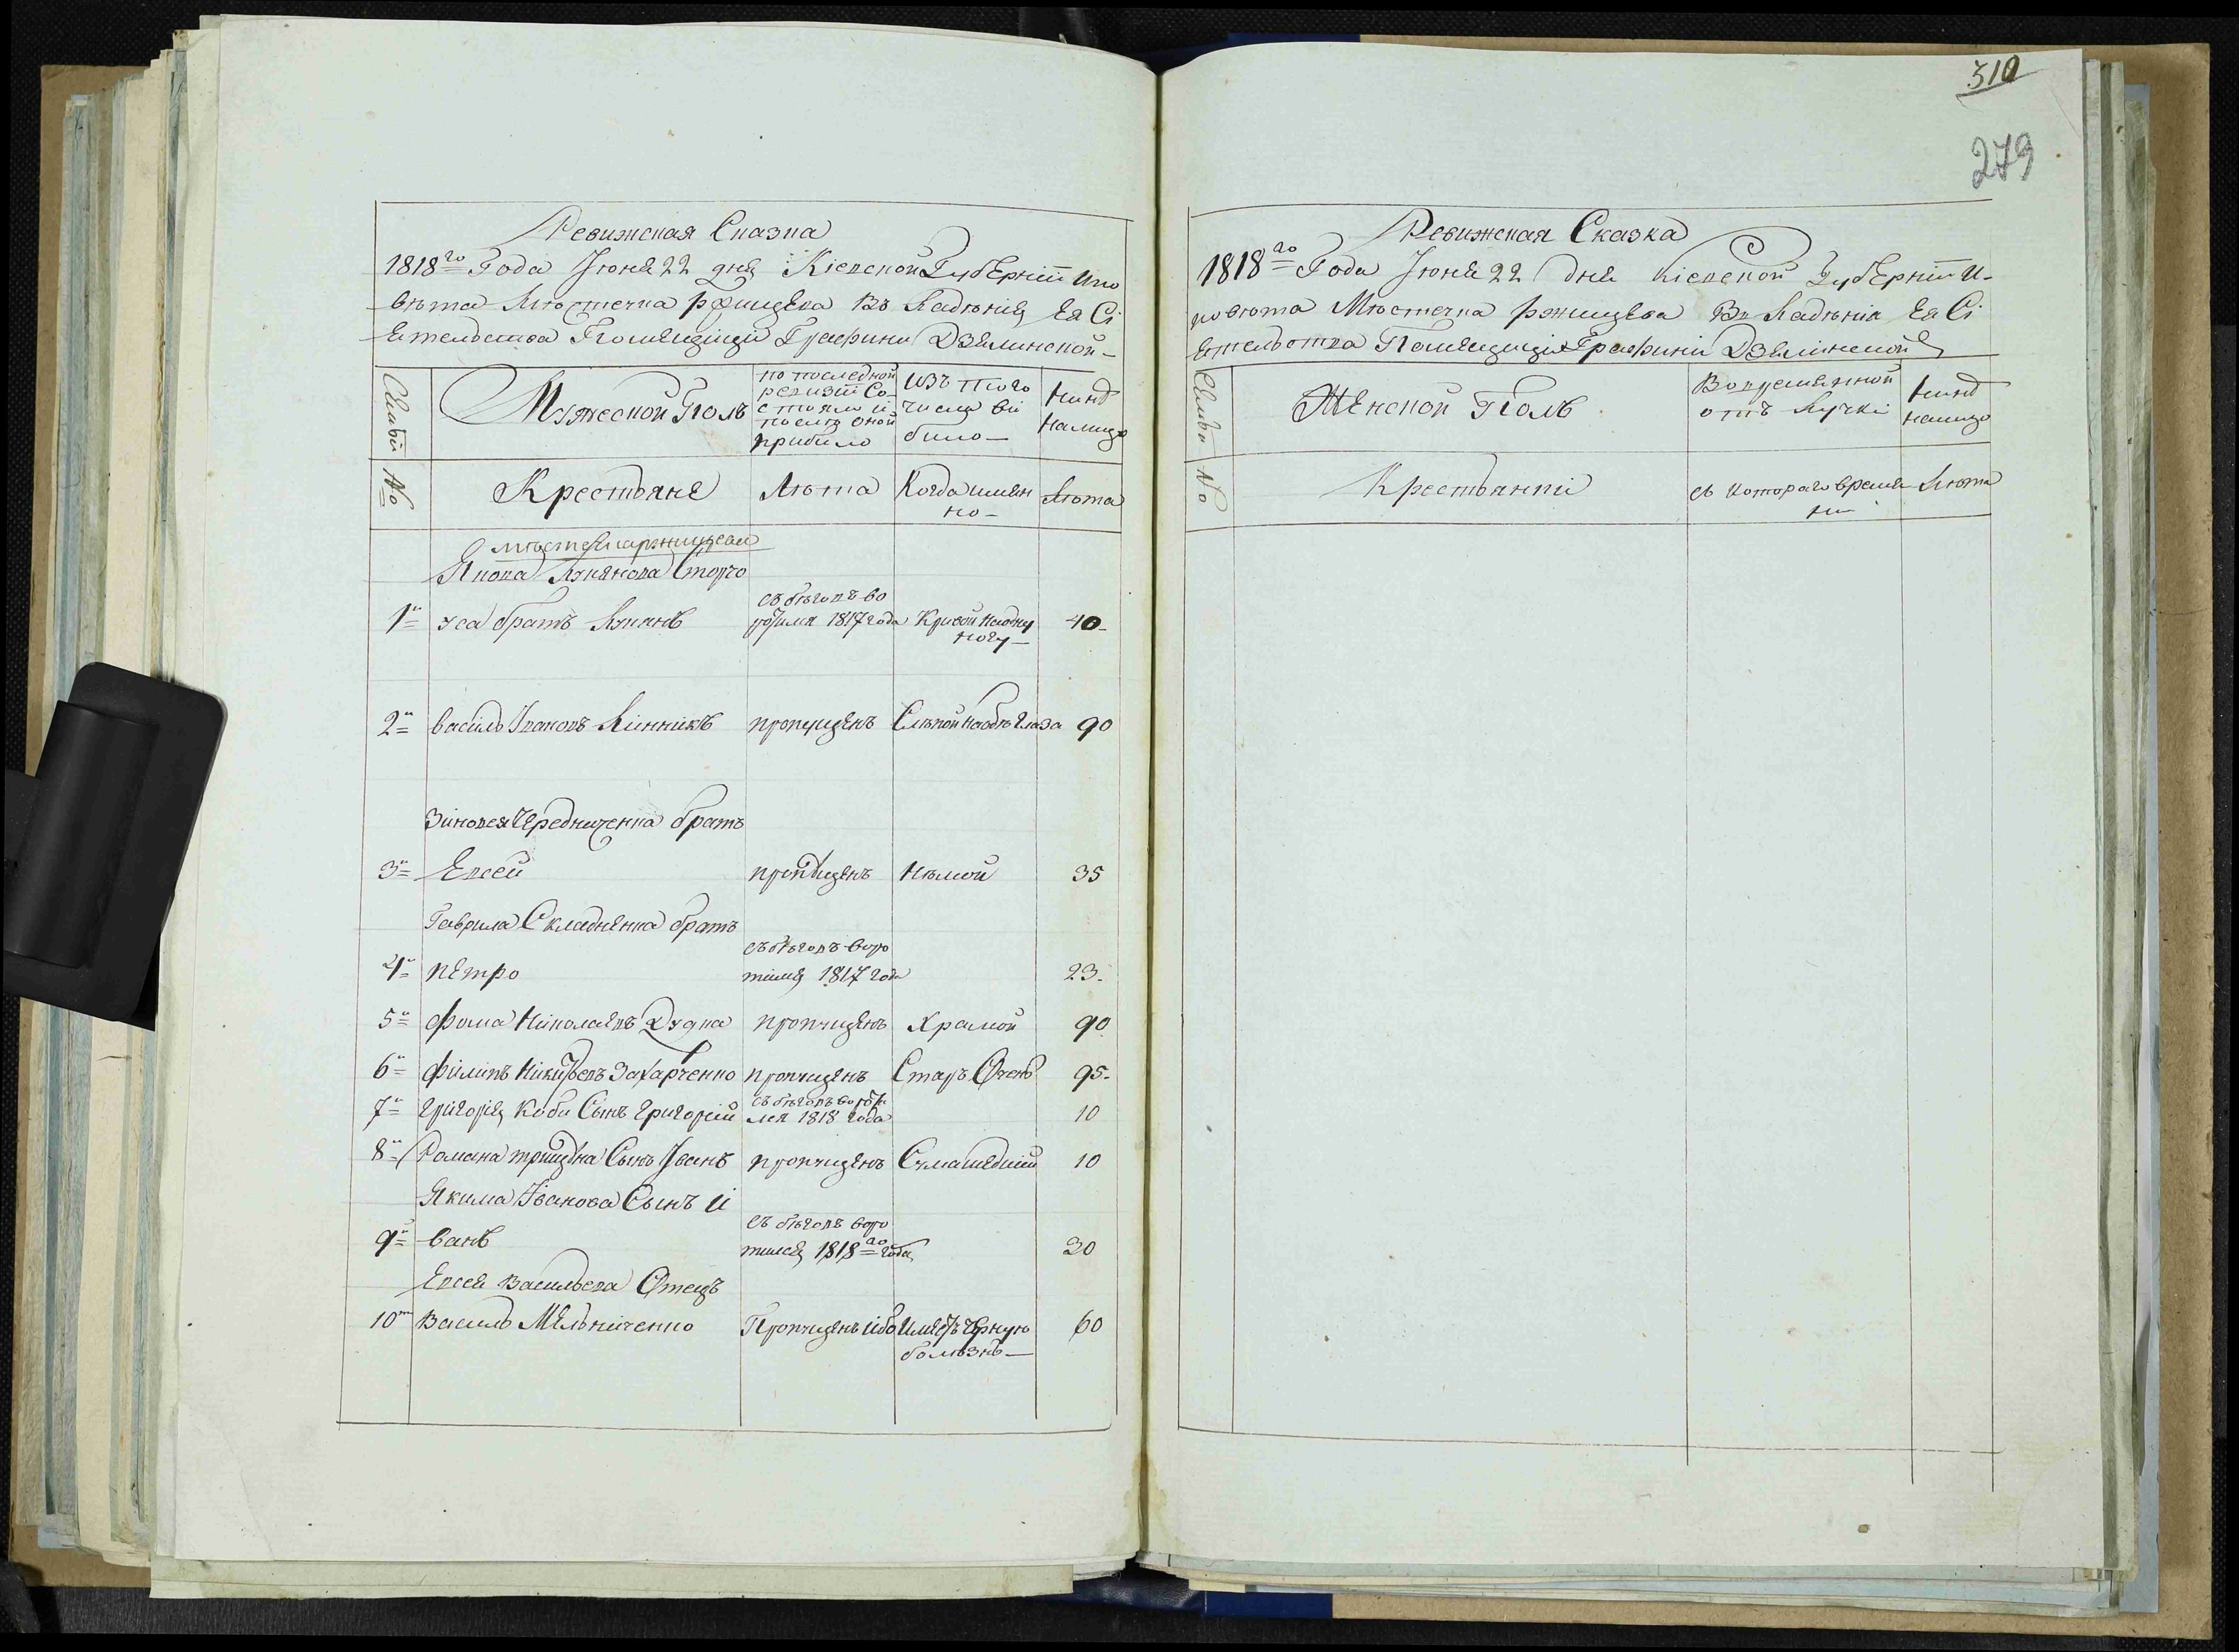 Ревижская Сказка
1818го Года Июня 22 дня Кіевской Губерніи и по
вѣта Мѣстечка ржищева Въ ладѣнія Ея Сі
ятельства Помещици Графини Дзялинской
Семьи
№
Мужеской Полъ
по последной
ревизіи Со-
стояло и
после оной
прибыло
изъ того
числа вы
было
нинѣ
налицо
Крестьяне
Лѣта
Когда имян
но
Лѣта
мѣстечка ржищева
Якова Лукянова Сторо
1й
жа братъ Лукянъ
съ бѣговъ во
ротился 1817 года
Кривой на одну
ногу
40
2й
Василь Івановъ Лінникъ
пропущенъ
Слѣпой на обѣ глаза
90
Зиновея Чередниченка братъ
3й
Евсей
пропущенъ
Нѣмой
35
Гаврила Складненка братъ
4й
петро
съ бѣговъ воро
тился 1817 года
23
5й
фома Николаевъ Дудка
пропущенъ
Хромой
90
6й
филипъ Никитевъ Захарченко
пропущенъ
Старъ Очень
95
7й
григорія Кобы Сынъ григорій
съ бѣговъ вороти
лся 1818 года
10
8й
Романа Сынъ Іванъ
пропущенъ
Сумашедшій
10
Якима Іванова Сынъ и
9й
ванъ
съ бѣговъ воро
тился 1818го года
30
Евсея Васильева Отецъ
10й
Василь Мельниченко
Пропущенъ ибо
Имеетъ чорную
болѣзнь
60
310
279
Ревижская Сказка
1818го Года Июня 22 дня Кіевской Губерніи и
повѣта Мѣстечка ржищева Въ ладѣнія Ея Сі
ятельства Помещици Графини Дзялинской
Семьи
№
Женской Полъ
Во временной
отлучки
нинѣ
налицо
Крестьянки
съ котораго време
ни
Лѣта